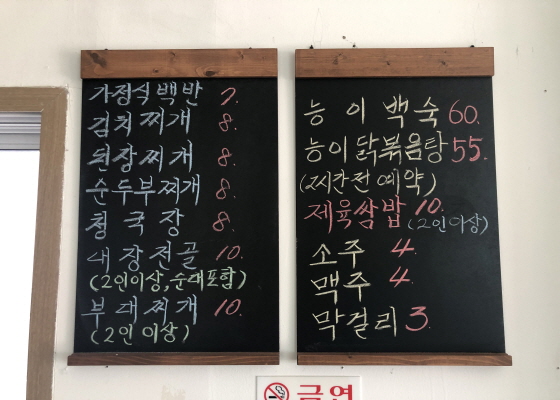 가정식백반 7.
김치찌개 8.
된장찌개 8.
순두부찌개 8.
청국장 8.
내장전골 10.
(2인이상, 순대포함)
부대찌개 10.
(2인 이상)
능이백숙 60.
능이닭볶음탕 55.
(2시간전 예약)
제육쌈밥 10.
(2인이상)
소주 4
맥주 4
막걸리 3.
금연